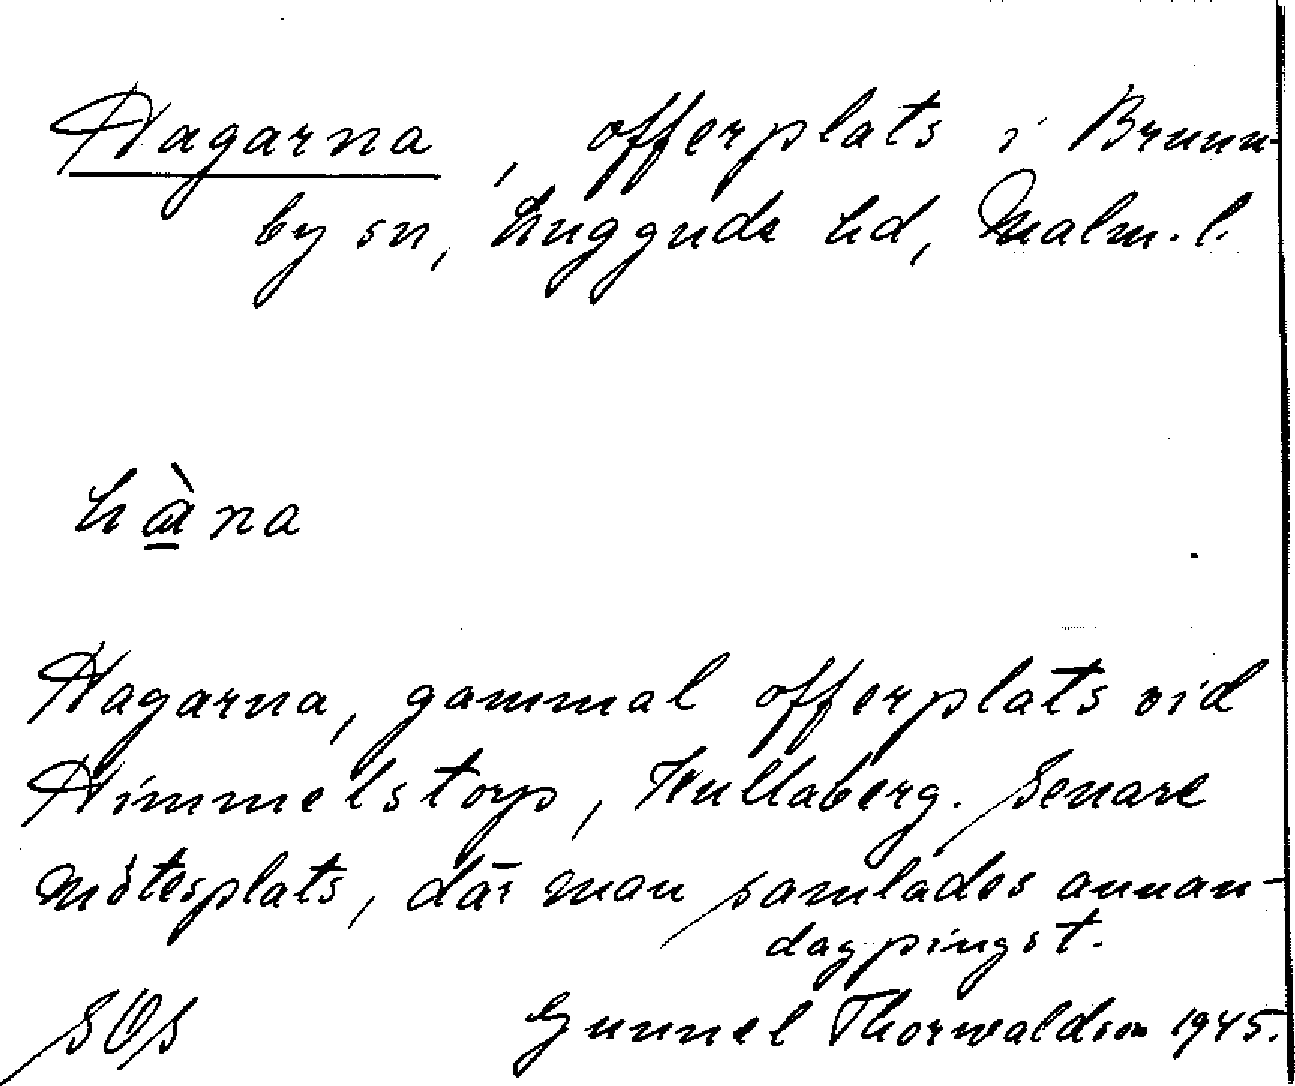 Hagarna, offerplats i Brunn-
by sn, Luggude hd, Malm. l.
hàna
Hagarna, gammal offerplats vid
Himmelstorp, Kullaberg. Senare
mötesplats, där man samlades annan-
dag pingst.
SOS Gunnel Thorwaldson 1945.